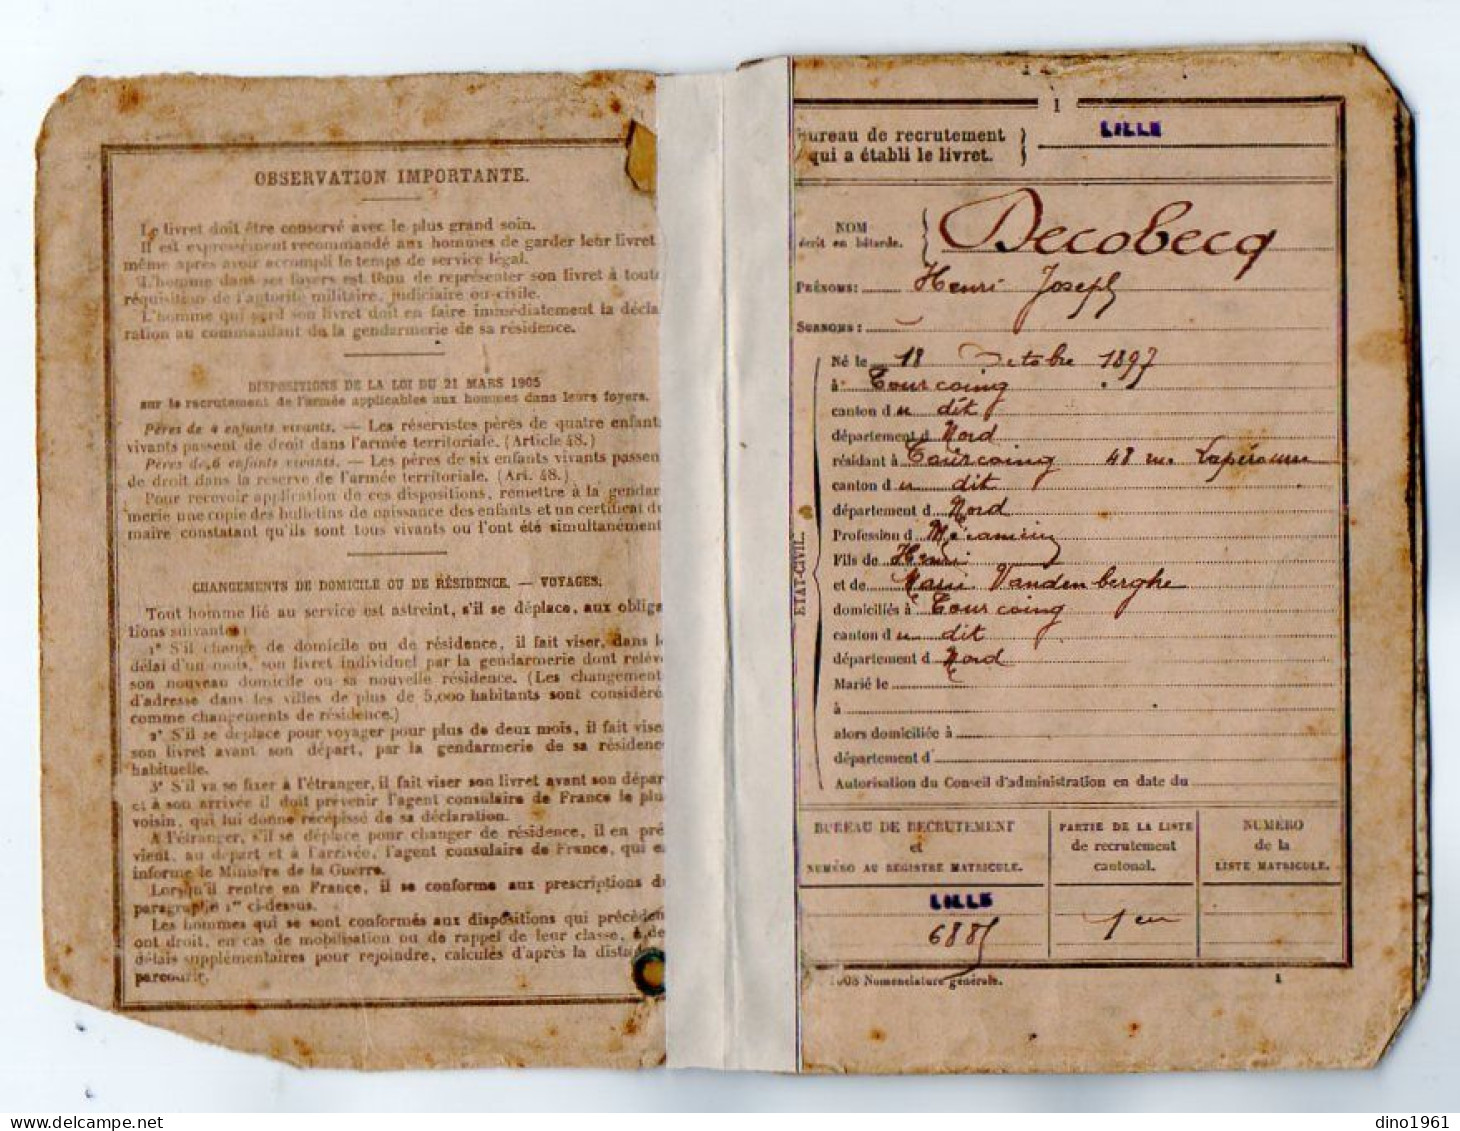 OBSERVATION IMPORTANTE.
Le livret doit être conservé avec le plus grand soin.
Il est expressément recommandé aux hommes de garder leur livret
même après avoir accompli le temps de service légal.
L'homme dans ses foyers est tenu de représenter son livret à toute
réquisition de l'autorité militaire, judiciaire ou civile.
L'homme qui perd son livret doit en faire immédiatement la décla
ration au commandant de la gendarmerie de sa résidence.
DISPOSITIONS DE LA LOI DU 21 MARS 1905
sur le recrutement de l'armée applicables aux hommes dans leurs foyers.
Pères de 4 enfants vivants. — Les réservistes pères de quatre enfants
vivants passent de droit dans l'armée territoriale. (Article 48.)
Pères de 6 enfants vivants. — Les pères de six enfants vivants passen
de droit dans la reserve de l'armée territoriale. (Art. 48.)
Pour recevoir application de ces dispositions, remettre à la gendar
merie une copie des bulletins de naissance des enfants et un certificat du
maire constatant qu'ils sont tous vivants ou l'ont été simultanément
CHANGEMENTS DE DOMICILE OU DE RÉSIDENCE. — VOYAGES.
Tout homme lié au service est astreint, s'il se déplace, aux obliga
tions suivantes :
1° S'il change de domicile ou de résidence, il fait viser, dans le
délai d'un mois, son livret individuel par la gendarmerie dont relève
son nouveau domicile ou sa nouvelle résidence. (Les changement
d'adresse dans les villes de plus de 5,000 habitants sont considéré
comme changements de résidence.)
2° S'il se déplace pour voyager pour plus de deux mois, il fait vise
son livret avant son départ, par la gendarmerie de sa résidence
habituelle.
3° S'il va se fixer à l'étranger, il fait viser son livret avant son dépar
et à son arrivée il doit prévenir l'agent consulaire de France le plu
voisin, qui lui donne récépissé de sa déclaration.
A l'étranger, s'il se déplace pour changer de résidence, il en pré
vient, au départ et à l'arrivée, l'agent consulaire de France, qui e
informe le Ministre de la Guerre.
Lorsqu'il rentre en France, il se conforme aux prescriptions du
paragraphe 1er ci-dessus.
Les hommes qui se sont conformés aux dispositions qui précèden
ont droit, en cas de mobilisation ou de rappel de leur classe, à de
délais supplémentaires pour rejoindre, calculés d'après la distance
parcourir.
1
Bureau de recrutement
qui a établi le livret.
LILLE
NOM
écrit en bâtarde.
Decobecq
PRÉNOMS: Henri Joseph
SURNOMS:
ÉTAT-CIVIL.
Né le 18 Octobre 1897
à Tourcoing
canton du dit
département d Nord
résidant à Tourcoing 48 rue Lapérouse
canton du dit
département d Nord
Profession d Mécanicien
Fils de Henri
et de Marie Vandenberghe
domiciliés à Tourcoing
canton du dit
département d Nord
Marié le
à
alors domiciliée à
département d
Autorisation du Conseil d'administration en date du
BUREAU DE RECRUTEMENT
et
NUMÉRO AU REGISTRE MATRICULE.
PARTIE DE LA LISTE
de recrutement
cantonal.
NUMÉRO
de la
LISTE MATRICULE.
LILLE
6885
1ère
1908 Nomenclature générale.
1
dino1961